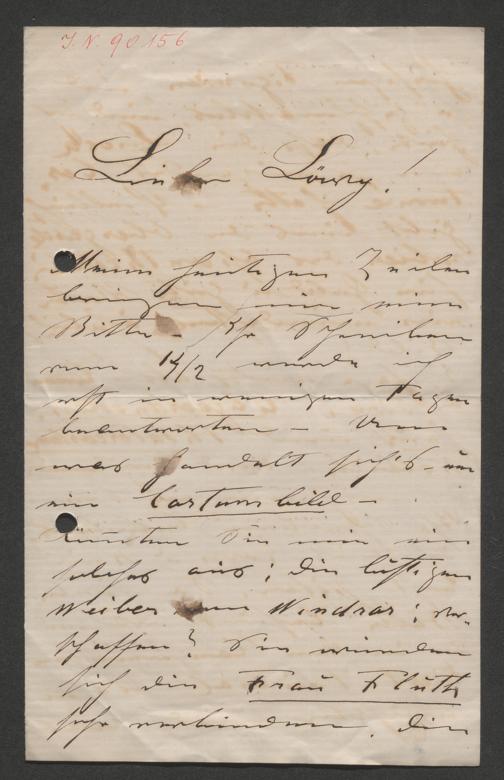 J. N. 90.156
Lieber Löwy!
Meine heutigen Zeilen
bringen nur eine
Bitte – Ihr Schreiben
vom 14/2 werde ich
erst in wenigen Tagen
beantworten – Um
was handelt sich's – um
ein Costumebild –
Könnten Sie mir ein
solches aus: die lustigen
Weiber von Windsor; ver-
schaffen? Sie würden
sich die Frau Fluth
sehr verbinden, die